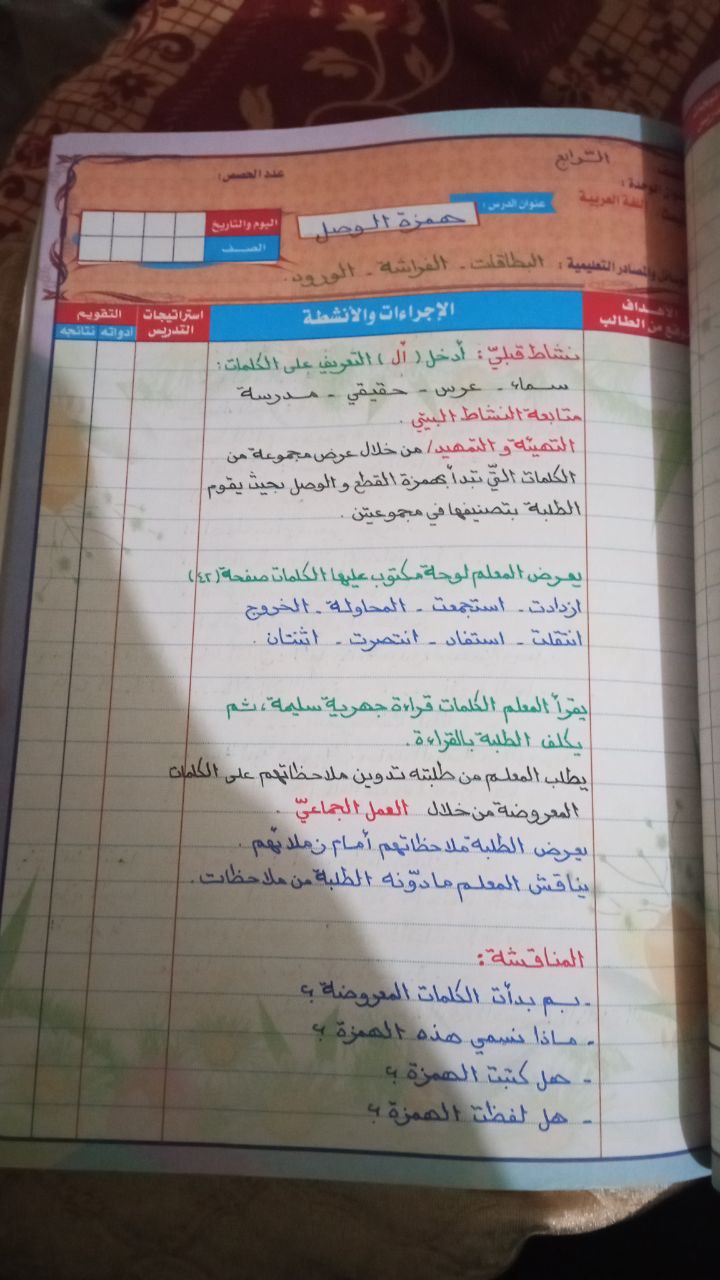 الرابع
عدد الحصص:
اللغة العربية
عنوان الدرس:
همزة الوصل
اليوم والتاريخ
الصف
والمصادر التعليمية: البطاقات - الفراشة - الورود.
الأهداف
من الطالب
الإجراءات والأنشطة
استراتيجات التدريس
التقويم
أدواته نتائجه
نشاط قبليّ: أدخل (أل) التعريف على الكلمات:
سماء - عرس - حقيقي - مدرسة
متابعة النشاط البيتي.
التهيئة والتمهيد/ من خلال عرض مجموعة من
الكلمات التّي تبدأ بهمزة القطع والوصل بحيث يقوم
الطلبة بتصنيفها في مجموعتين.
يعرض المعلم لوحة مكتوب عليها الكلمات صفحة (٤٢)
ازدادت - استجمعت - المحاولة - الخروج
انتقلت - استفاد - انتصرت - اثنتان.
يقرأ المعلم الكلمات قراءة جهرية سليمة، ثم
يكلف الطلبة بالقراءة.
يطلب المعلم من طلبته تدوين ملاحظاتهم على الكلمات
المعروضة من خلال العمل الجماعيّ.
يعرض الطلبة ملاحظاتهم أمام زملائهم.
يناقش المعلم مادوّنه الطلبة من ملاحظات.
المناقشة:
- بم بدأت الكلمات المعروضة؟
- ماذا نسمي هذه الهمزة؟
- هل كتبت الهمزة؟
- هل لفظت الهمزة؟